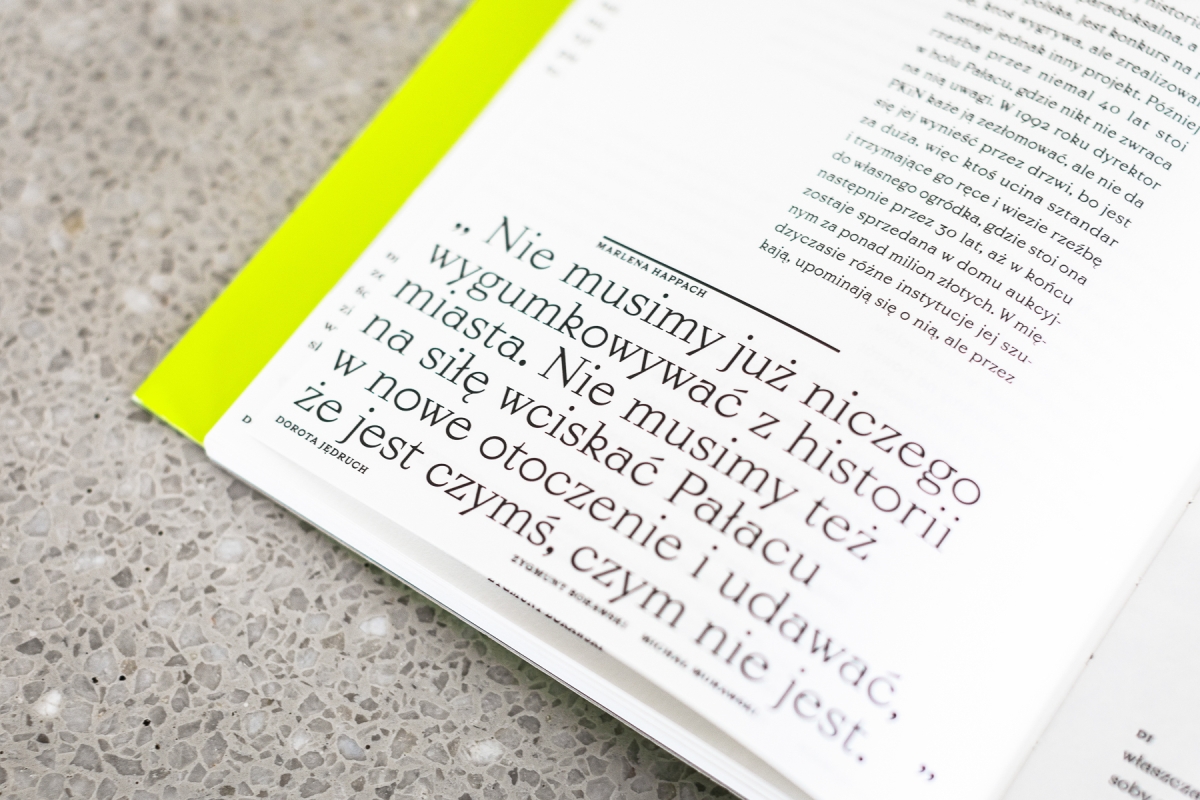 paradoksalna, a
polska, jest konkurs na
ktoś wygrywa, ale zrealizowa
zostaje jednak inny projekt. Późnie
rzeźba przez niemal 40 lat stoi
w holu Pałacu, gdzie nikt nie zwraca
na nią uwagi. W 1992 roku dyrektor
PKiN każe ją zezłomować, ale nie da
się jej wynieść przez drzwi, bo jest
za duża, więc ktoś ucina sztandar
i trzymające go ręce i wiezie rzeźbę
do własnego ogródka, gdzie stoi ona
następnie przez 30 lat, aż w końcu
zostaje sprzedana w domu aukcyj-
nym za ponad milion złotych. W mię-
dzyczasie różne instytucje jej szu-
kają, upominają się o nią, ale przez
MARLENA HAPPACH
„ Nie musimy już niczego
wygumkowywać z historii
miasta. Nie musimy też
na siłę wciskać Pałacu
w nowe otoczenie i udawać,
że jest czymś, czym nie jest. ”
DOROTA JĘDRUCH
ZYGMUNT BORAWSKI
DJ
właszcz
soby